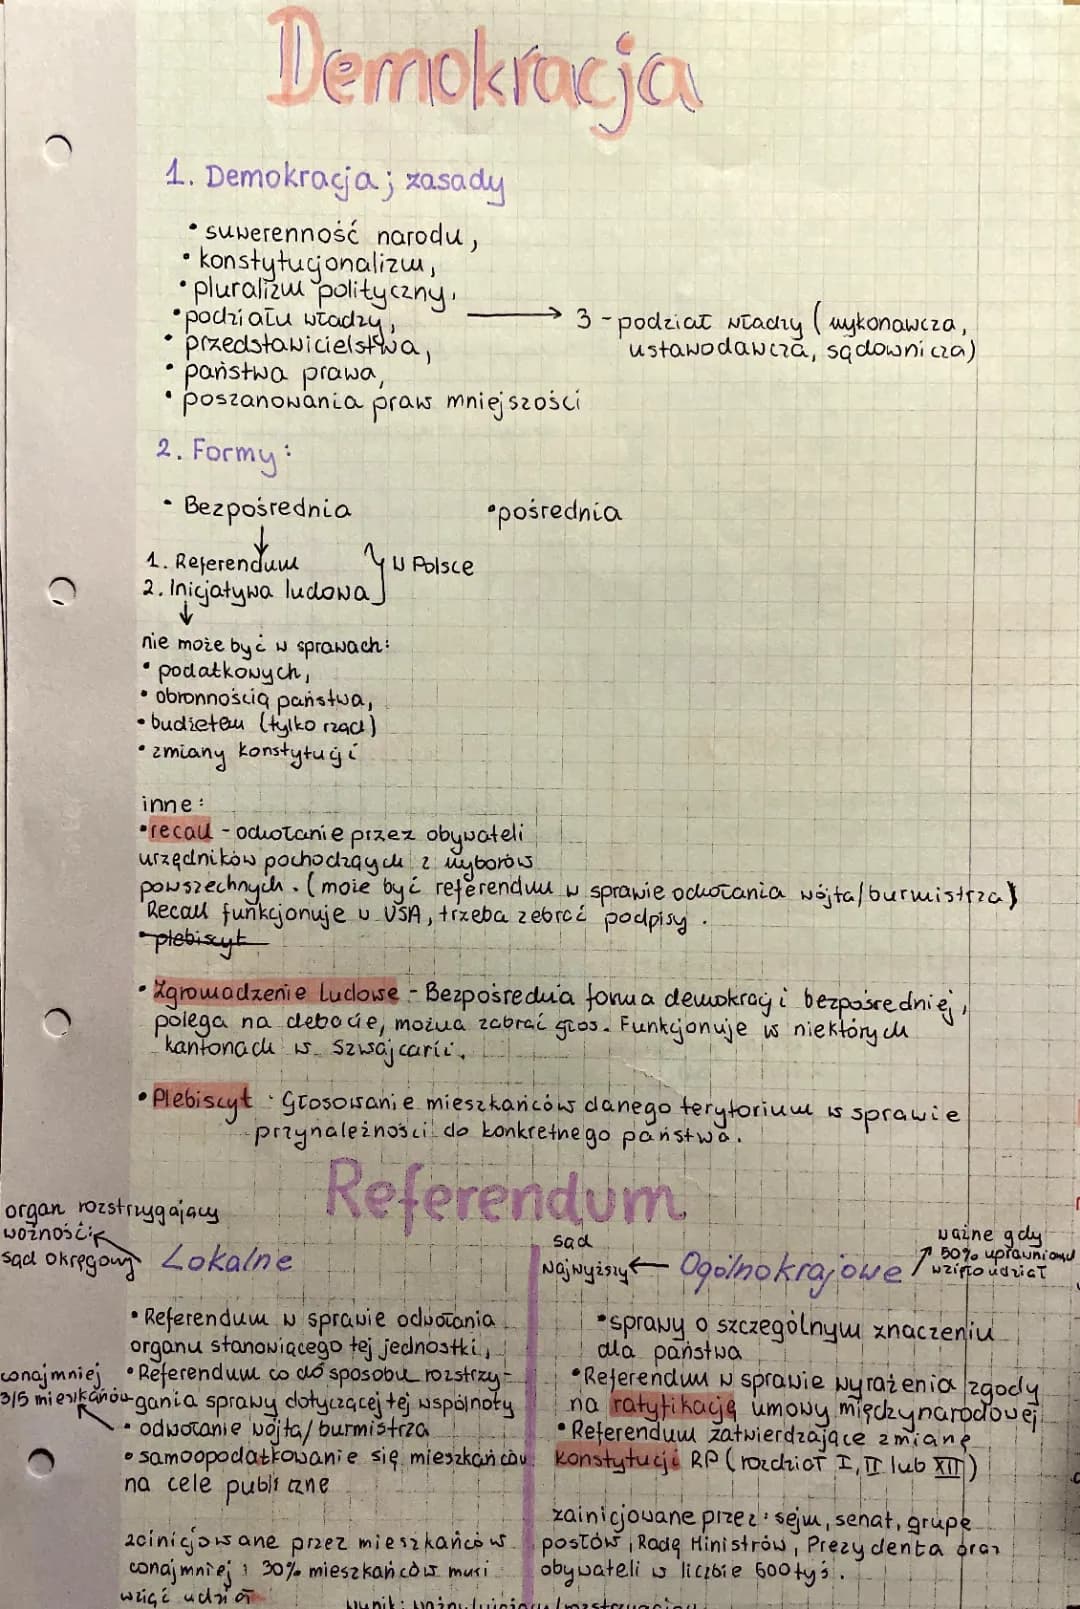 Demokracja
1. Demokracja; zasady
• suwerenność narodu,
• konstytucjonalizm,
• pluralizm polityczny,
• podziału władzy, → 3 - podział władzy (wykonawcza,
ustawodawcza, sądownicza)
• przedstawicielstwa,
• państwa prawa,
• poszanowania praw mniejszości
2. Formy:
• Bezpośrednia
• pośrednia
1. Referendum
2. Inicjatywa ludowa
} w Polsce
nie może być w sprawach:
• podatkowych,
• obronnością państwa,
• budżetem (tylko rząd)
• zmiany konstytucji
inne:
• recall - odwołanie przez obywateli
urzędników pochodzących z wyborów
powszechnych. (może być referendum w sprawie odwołania wójta/burmistrza)
Recall funkcjonuje w USA, trzeba zebrać podpisy.
• plebiscyt
• Zgromadzenie Ludowe - Bezpośrednia forma demokracji bezpośredniej,
polega na debacie, można zabrać głos. Funkcjonuje w niektórych
kantonach w Szwajcarii.
• Plebiscyt - Głosowanie mieszkańców danego terytorium w sprawie
przynależności do konkretnego państwa.
Referendum
organ rozstrzygający
wożność:
sąd okręgowy
Lokalne
• Referendum w sprawie odwołania
organu stanowiącego tej jednostki,
• Referendum co do sposobu rozstrzy-
gania sprawy dotyczącej tej wspólnoty
conajmniej
3/5 mieszkańców
• odwołanie wójta/burmistrza
• samoopodatkowanie się mieszkańców
na cele publiczne
zainicjowane przez mieszkańców
conajmniej : 30% mieszkańców musi
wziąć udział
sąd
Najwyższy
Ogólnokrajowe
ważne gdy
50% uprawnionych
wzięło udział
• sprawy o szczególnym znaczeniu
dla państwa
• Referendum w sprawie wyrażenia zgody
na ratyfikację umowy międzynarodowej
• Referendum zatwierdzające zmianę
konstytucji RP (rozdział I, II lub XII)
zainicjowane przez: sejm, senat, grupę
posłów, Radę Ministrów, Prezydenta oraz
obywateli w liczbie 500tyś.